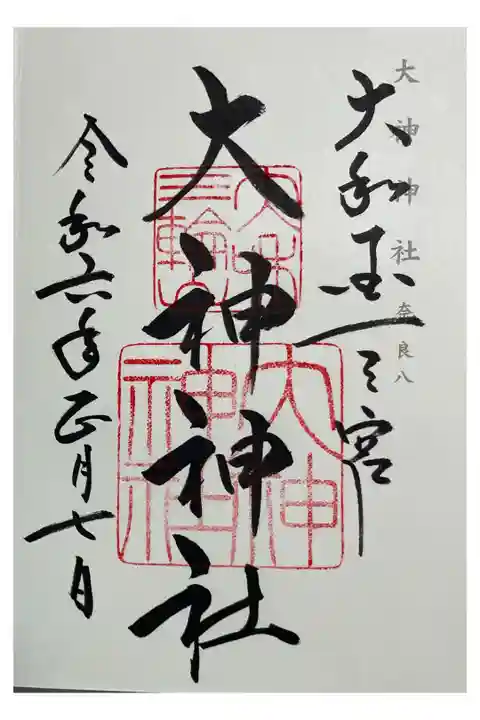 大神神社 奈良八
大和国一之宮
大神神社
令和六年正月七日
大神神社